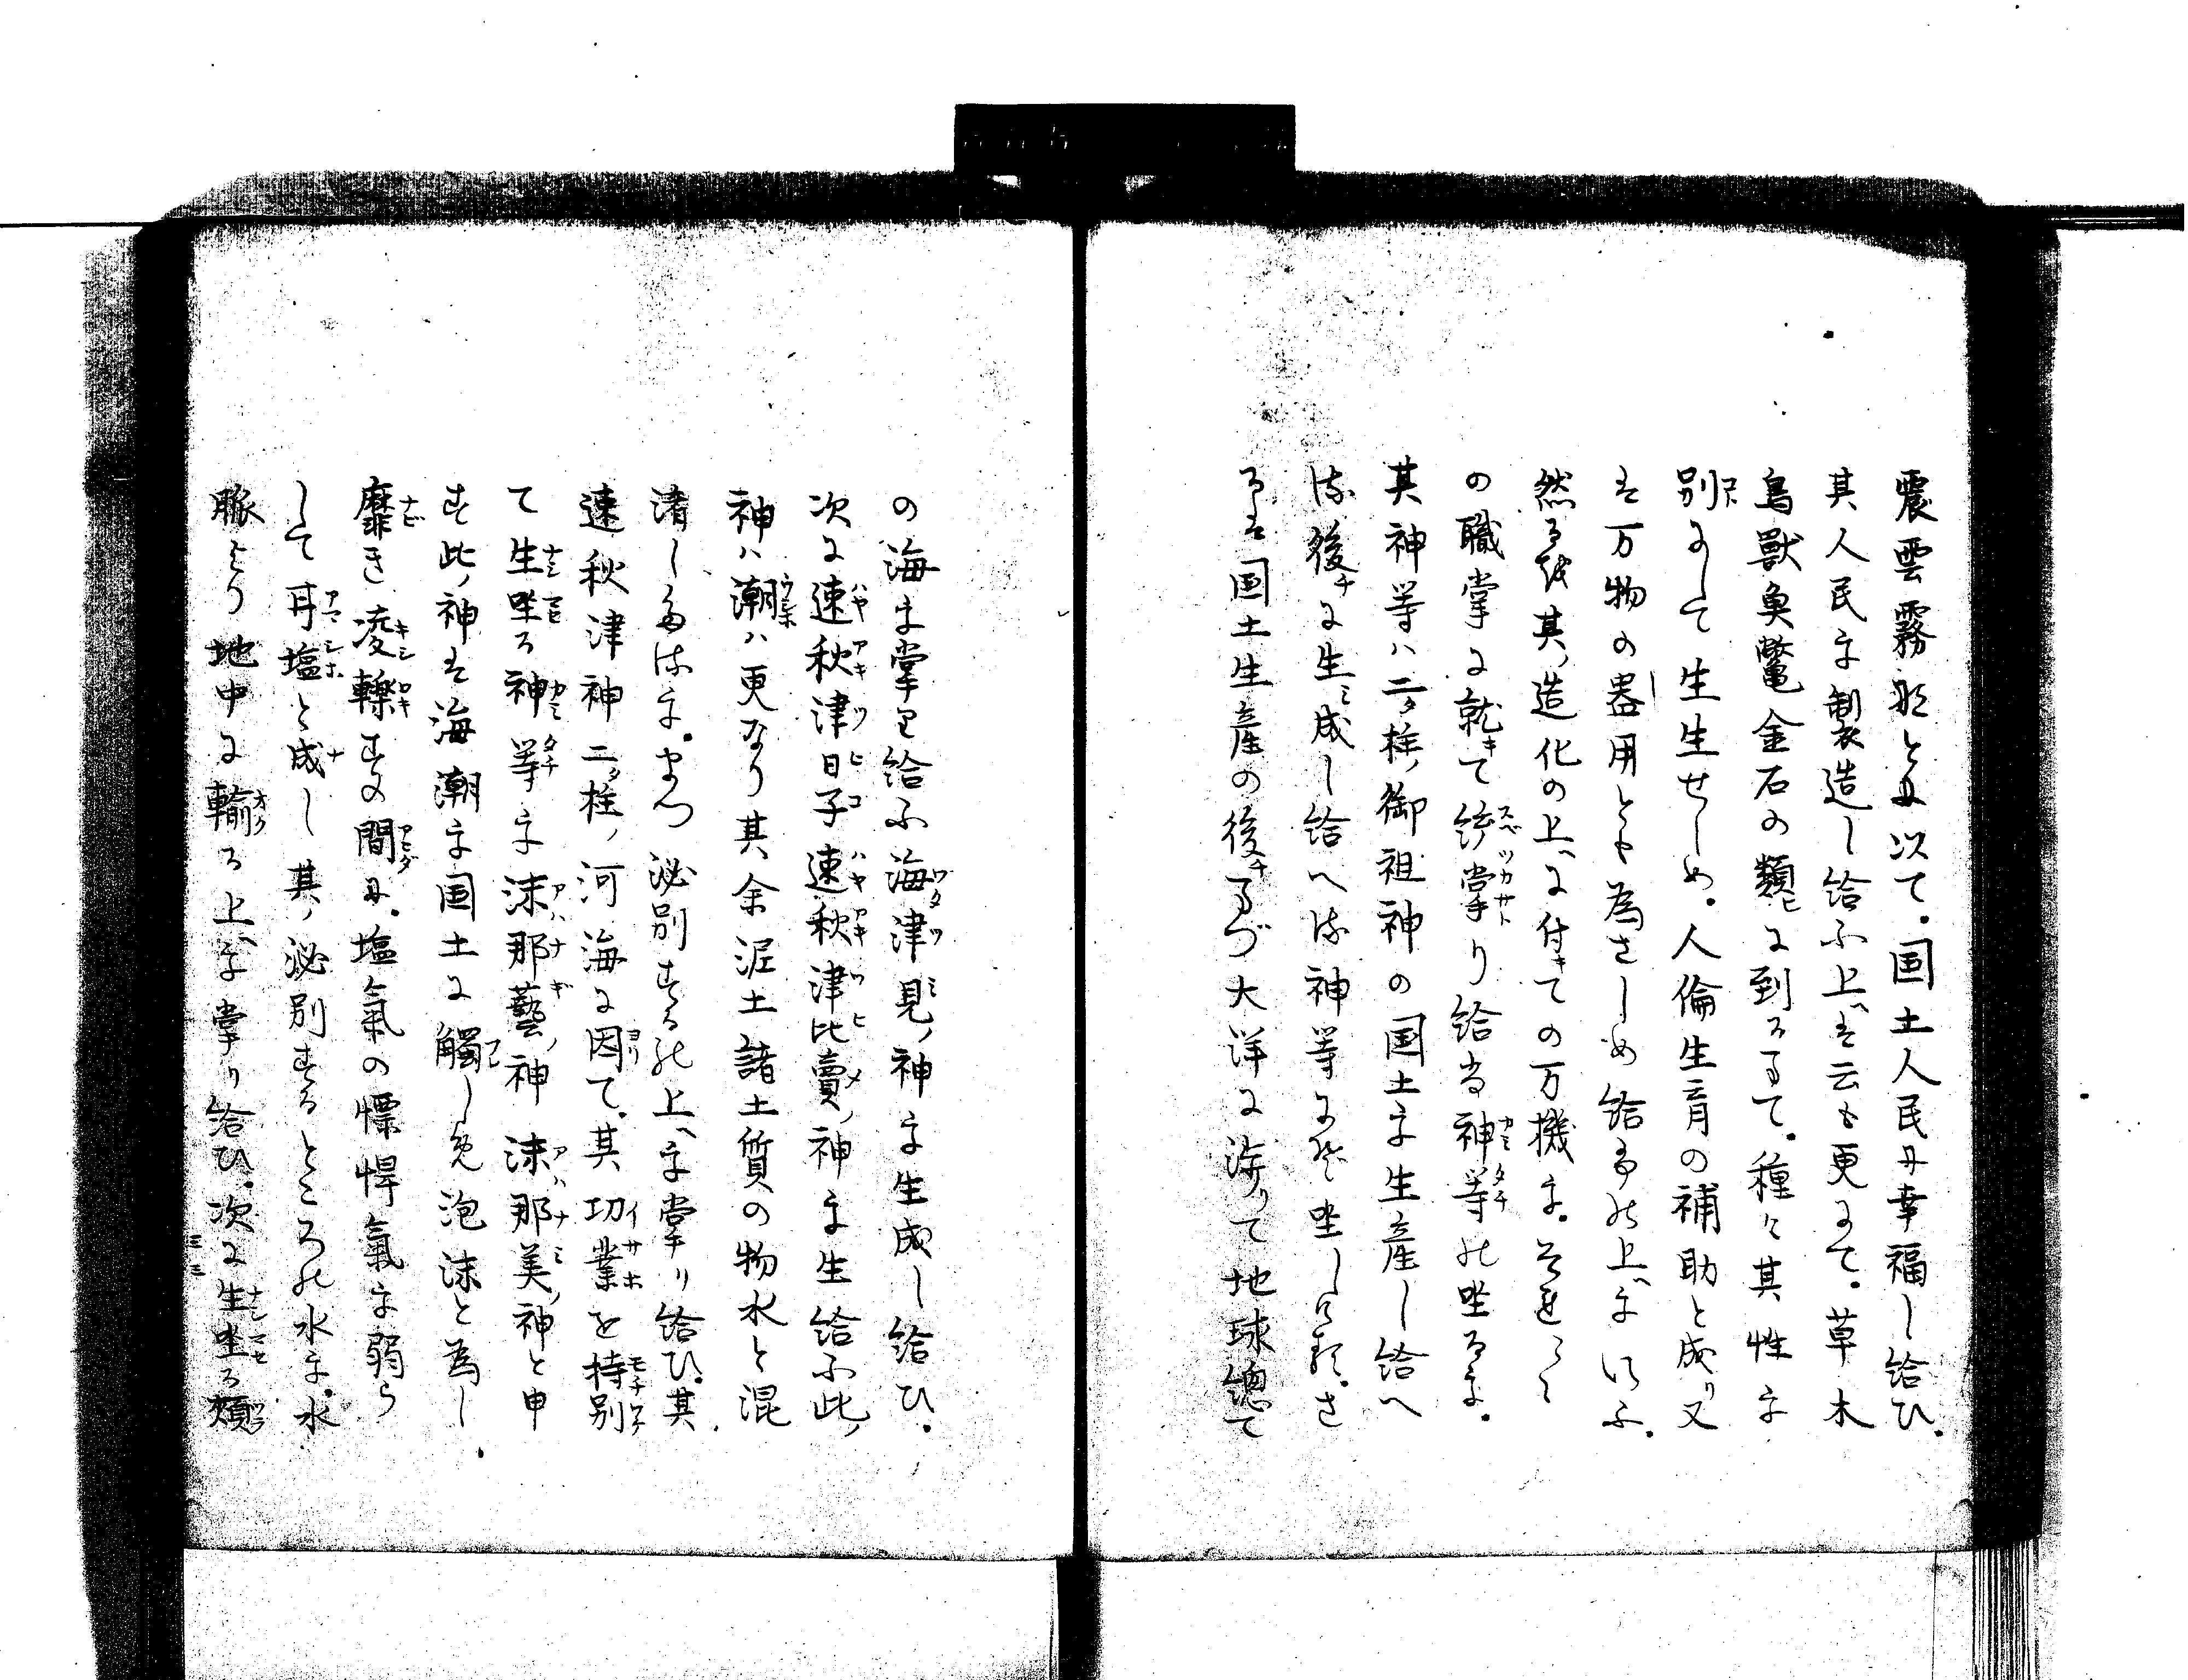 震雲霧形とを以て。国土人民を幸福し給ひ。
其人民を製造し給ふ上は云も更にて。草木
鳥獣魚鼈金石の類に到るまて。種々其性を
別にして生生せしめ。人倫生育の補助と成り又
は万物の器用とも為さしめ給ふの上をいふ。
然るを其造化の上に付ての万機を。それ〳〵
の職掌に就て統掌り給ふ神等の坐るを。
其神等ハ二柱御祖神の国土を生産し給へ
る後に生成し給へる神等にぞ坐しける。さ
るは国土生産の後まづ大洋に渉りて地球總て
の海を掌り給ふ海津見神を生成し給ひ。
次に速秋津日子速秋津比賣神を生給ふ此
神ハ潮ハ更なり其余泥土諸土質の物水と混
淆したるを。まつ泌別するの上を掌り給ひ。其
速秋津神二柱河海に因て。其功業を持別
て生坐る神等を沫那藝神沫那美神と申
す此神は海潮を国土に觸しめ泡沫と為し
靡き凌轢するの間に。塩氣の慓悍氣を弱ら
して甘塩と成し其泌別するところの水を。水
脈より地中に輸る上を掌り給ひ。次に生坐る頬